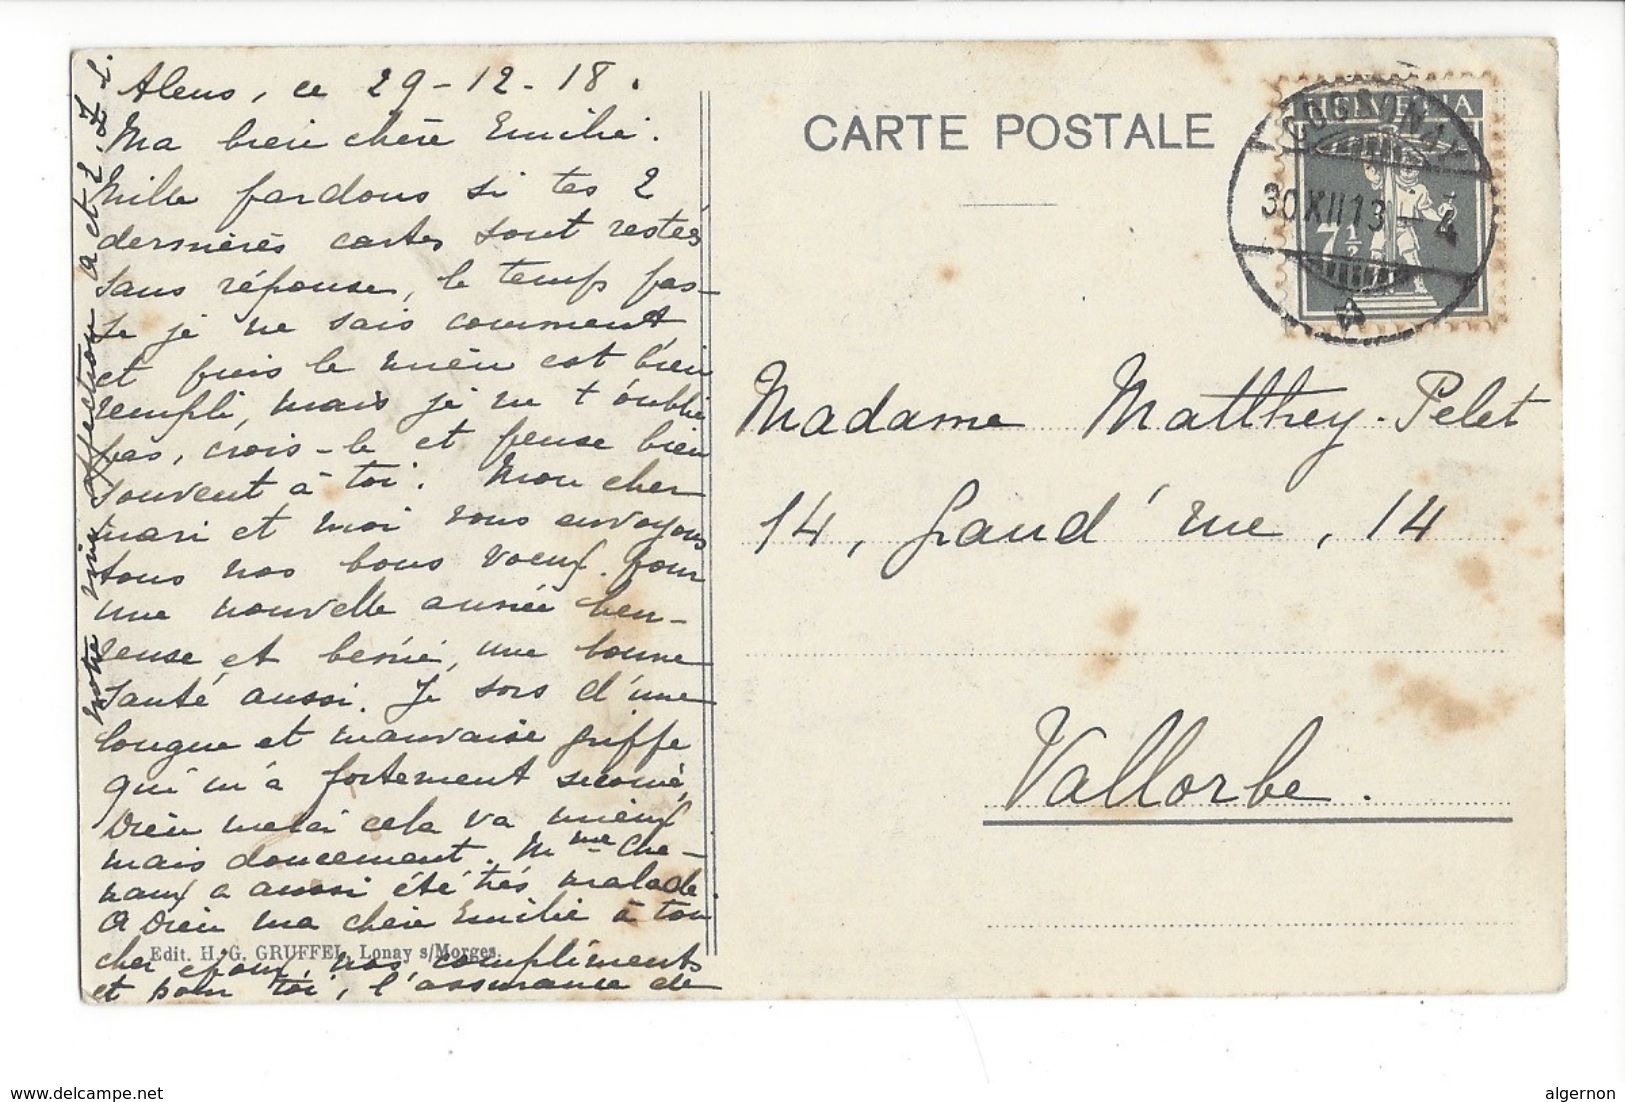 Alens, ce 29-12-18.
Ma bien chère Emilie.
Mille pardons si tes 2
dernières cartes sont restées
sans réponse, le temps pas-
se je ne sais comment
et puis le mien est bien
rempli, mais je ne t'oublie
pas, crois-le et pense bien
souvent à toi. Mon cher
mari et moi vous envoyons
tous nos bons voeux pour
une nouvelle année heu-
reuse et bénie, une bonne
santé aussi. Je sors d'une
longue et mauvaise griffe
qui m'a fortement secouée,
Dieu merci cela va mieux
mais doucement. Mme Che-
naux a aussi été très malade.
A Dieu ma chère Emilie à ton
cher époux, nos compliments
et pour toi, l'assurance de
notre vive affection A et L.
Edit. H. G. GRUFFEL, Lonay s/Morges.
CARTE POSTALE
HELVETIA
7½
COSSONAY
30 XII 13 - 4
Madame Matthey-Pelet
14, Grand'rue, 14
Vallorbe.
www.delcampe.net
algernon